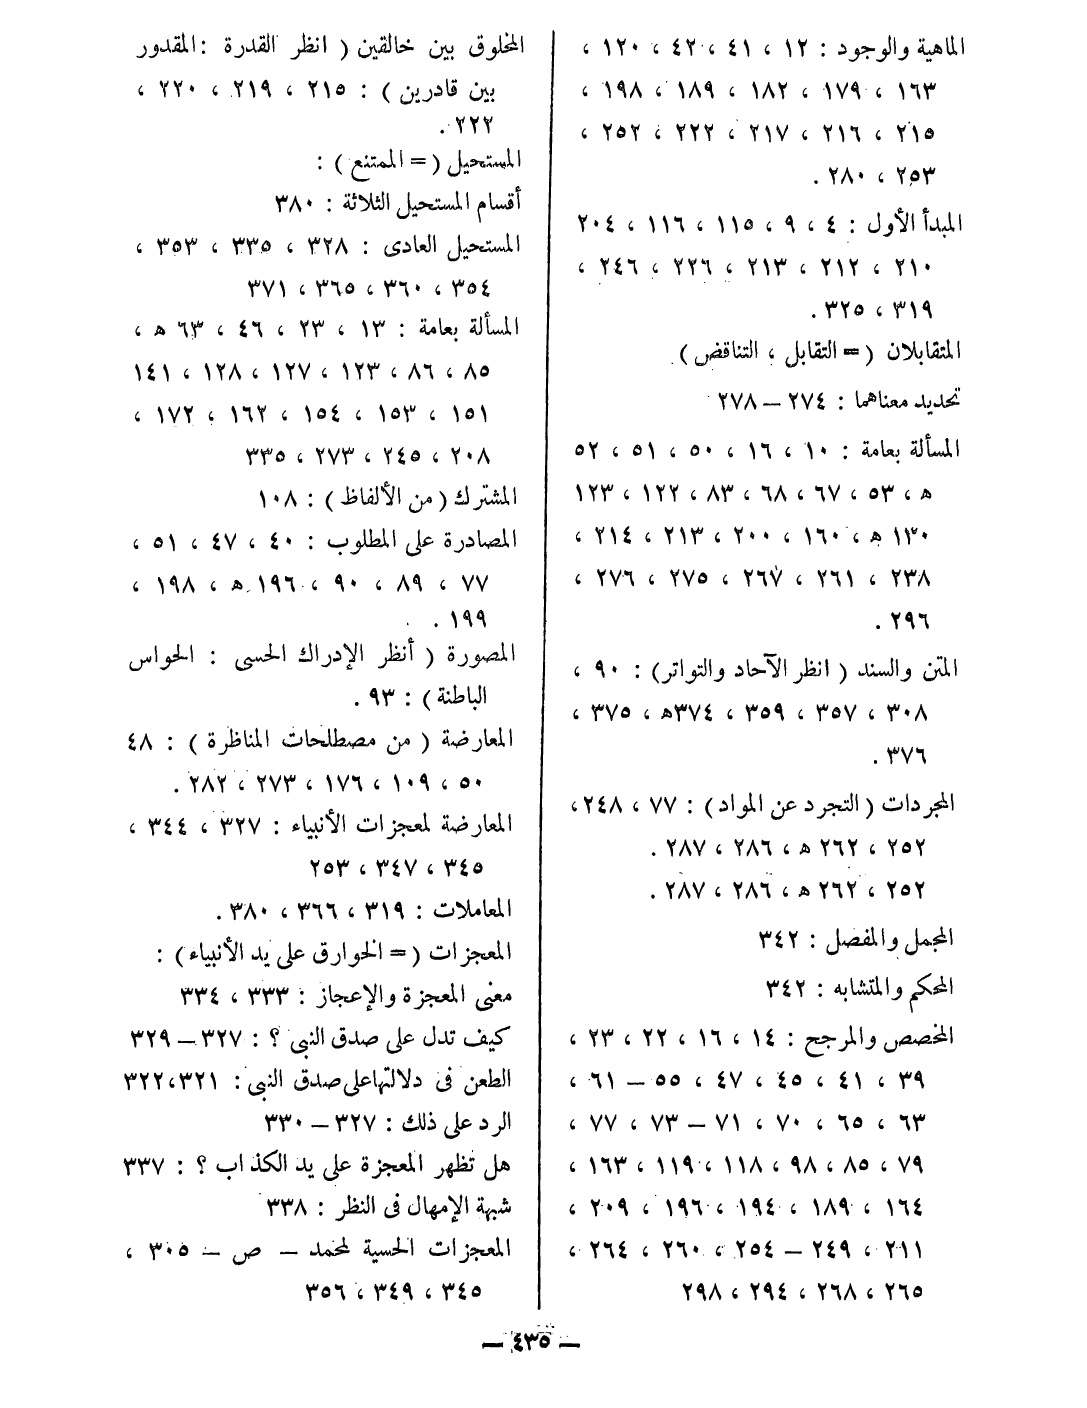 الماهية والوجود : ١٢ ، ٤١ ، ٤٢ ، ١٢٠ ،
١٦٣ ، ١٧٩ ، ١٨٢ ، ١٨٩ ، ١٩٨ ،
٢١٥ ، ٢١٦ ، ٢١٧ ، ٢٢٢ ، ٢٥٢ ،
٢٥٣ ، ٢٨٠ .
المبدأ الأول : ٤ ، ٩ ، ١١٥ ، ١١٦ ، ٢٠٤
٢١٠ ، ٢١٢ ، ٢١٣ ، ٢٢٦ ، ٢٤٦ ،
٣١٩ ، ٣٢٥ .
المتقابلان ( = التقابل ، التناقض ) .
تحديد معناهما : ٢٧٤ – ٢٧٨
المسألة بعامة : ١٠ ، ١٦ ، ٥٠ ، ٥١ ، ٥٢
ه ، ٥٣ ، ٦٧ ، ٦٨ ، ٨٣ ، ١٢٢ ، ١٢٣
١٣٠ ه ، ١٦٠ ، ٢٠٠ ، ٢١٣ ، ٢١٤ ،
٢٣٨ ، ٢٦١ ، ٢٦٧ ، ٢٧٥ ، ٢٧٦ ،
٢٩٦ .
المتن والسند ( انظر الآحاد والتواتر ) : ٩٠ ،
٣٠٨ ، ٣٥٧ ، ٣٥٩ ، ٣٧٤ه ، ٣٧٥ ،
٣٧٦ .
المجردات ( التجرد عن المواد ) : ٧٧ ، ٢٤٨ ،
٢٥٢ ، ٢٦٢ ه ، ٢٨٦ ، ٢٨٧ .
٢٥٢ ، ٢٦٢ ه ، ٢٨٦ ، ٢٨٧ .
المجمل والمفصل : ٣٤٢
المحكم والمتشابه : ٣٤٢
المخصص والمرجح : ١٤ ، ١٦ ، ٢٢ ، ٢٣ ،
٣٩ ، ٤١ ، ٤٥ ، ٤٧ ، ٥٥ – ٦١ ،
٦٣ ، ٦٥ ، ٧٠ ، ٧١ – ٧٣ ، ٧٧ ،
٧٩ ، ٨٥ ، ٩٨ ، ١١٨ ، ١١٩ ، ١٦٣ ،
١٦٤ ، ١٨٩ ، ١٩٤ ، ١٩٦ ، ٢٠٩ ،
٢١١ ، ٢٤٩ – ٢٥٤ ، ٢٦٠ ، ٢٦٤ ،
٢٦٥ ، ٢٦٨ ، ٢٩٤ ، ٢٩٨
المخلوق بين خالقين ( انظر القدرة : المقدور
بين قادرين ) : ٢١٥ ، ٢١٩ ، ٢٢٠ ،
٢٢٢ .
المستحيل ( = الممتنع ) :
أقسام المستحيل الثلاثة : ٣٨٠
المستحيل العادى : ٣٢٨ ، ٣٣٥ ، ٣٥٣ ،
٣٥٤ ، ٣٦٠ ، ٣٦٥ ، ٣٧١
المسألة بعامة : ١٣ ، ٢٣ ، ٤٦ ، ٦٣ ه ،
٨٥ ، ٨٦ ، ١٢٣ ، ١٢٧ ، ١٢٨ ، ١٤١
١٥١ ، ١٥٣ ، ١٥٤ ، ١٦٢ ، ١٧٢ ،
٢٠٨ ، ٢٤٥ ، ٢٧٣ ، ٣٣٥
المشترك ( من الألفاظ ) : ١٠٨
المصادرة على المطلوب : ٤٠ ، ٤٧ ، ٥١ ،
٧٧ ، ٨٩ ، ٩٠ ، ١٩٦ ه ، ١٩٨ ،
١٩٩ .
المصورة ( أنظر الإدراك الحسى : الحواس
الباطنة ) : ٩٣ .
المعارضة ( من مصطلحات المناظرة ) : ٤٨
٥٠ ، ١٠٩ ، ١٧٦ ، ٢٧٣ ، ٢٨٢ .
المعارضة لمعجزات الأنبياء : ٣٢٧ ، ٣٤٤ ،
٣٤٥ ، ٣٤٧ ، ٢٥٣
المعاملات : ٣١٩ ، ٣٦٦ ، ٣٨٠ .
المعجزات ( = الخوارق على يد الأنبياء ) :
معنى المعجزة والإعجاز : ٣٣٣ ، ٣٣٤
كيف تدل على صدق النبى ؟ : ٣٢٧ – ٣٢٩
الطعن فى دلالتها على صدق النبى : ٣٢١ ، ٣٢٢
الرد على ذلك : ٣٢٧ – ٣٣٠
هل تظهر المعجزة على يد الكذاب ؟ : ٣٣٧
شبهة الإمهال فى النظر : ٣٣٨
المعجزات الحسية لمحمد – ص – ٣٠٥ ،
٣٤٥ ، ٣٤٩ ، ٣٥٦
– ٤٣٥ –